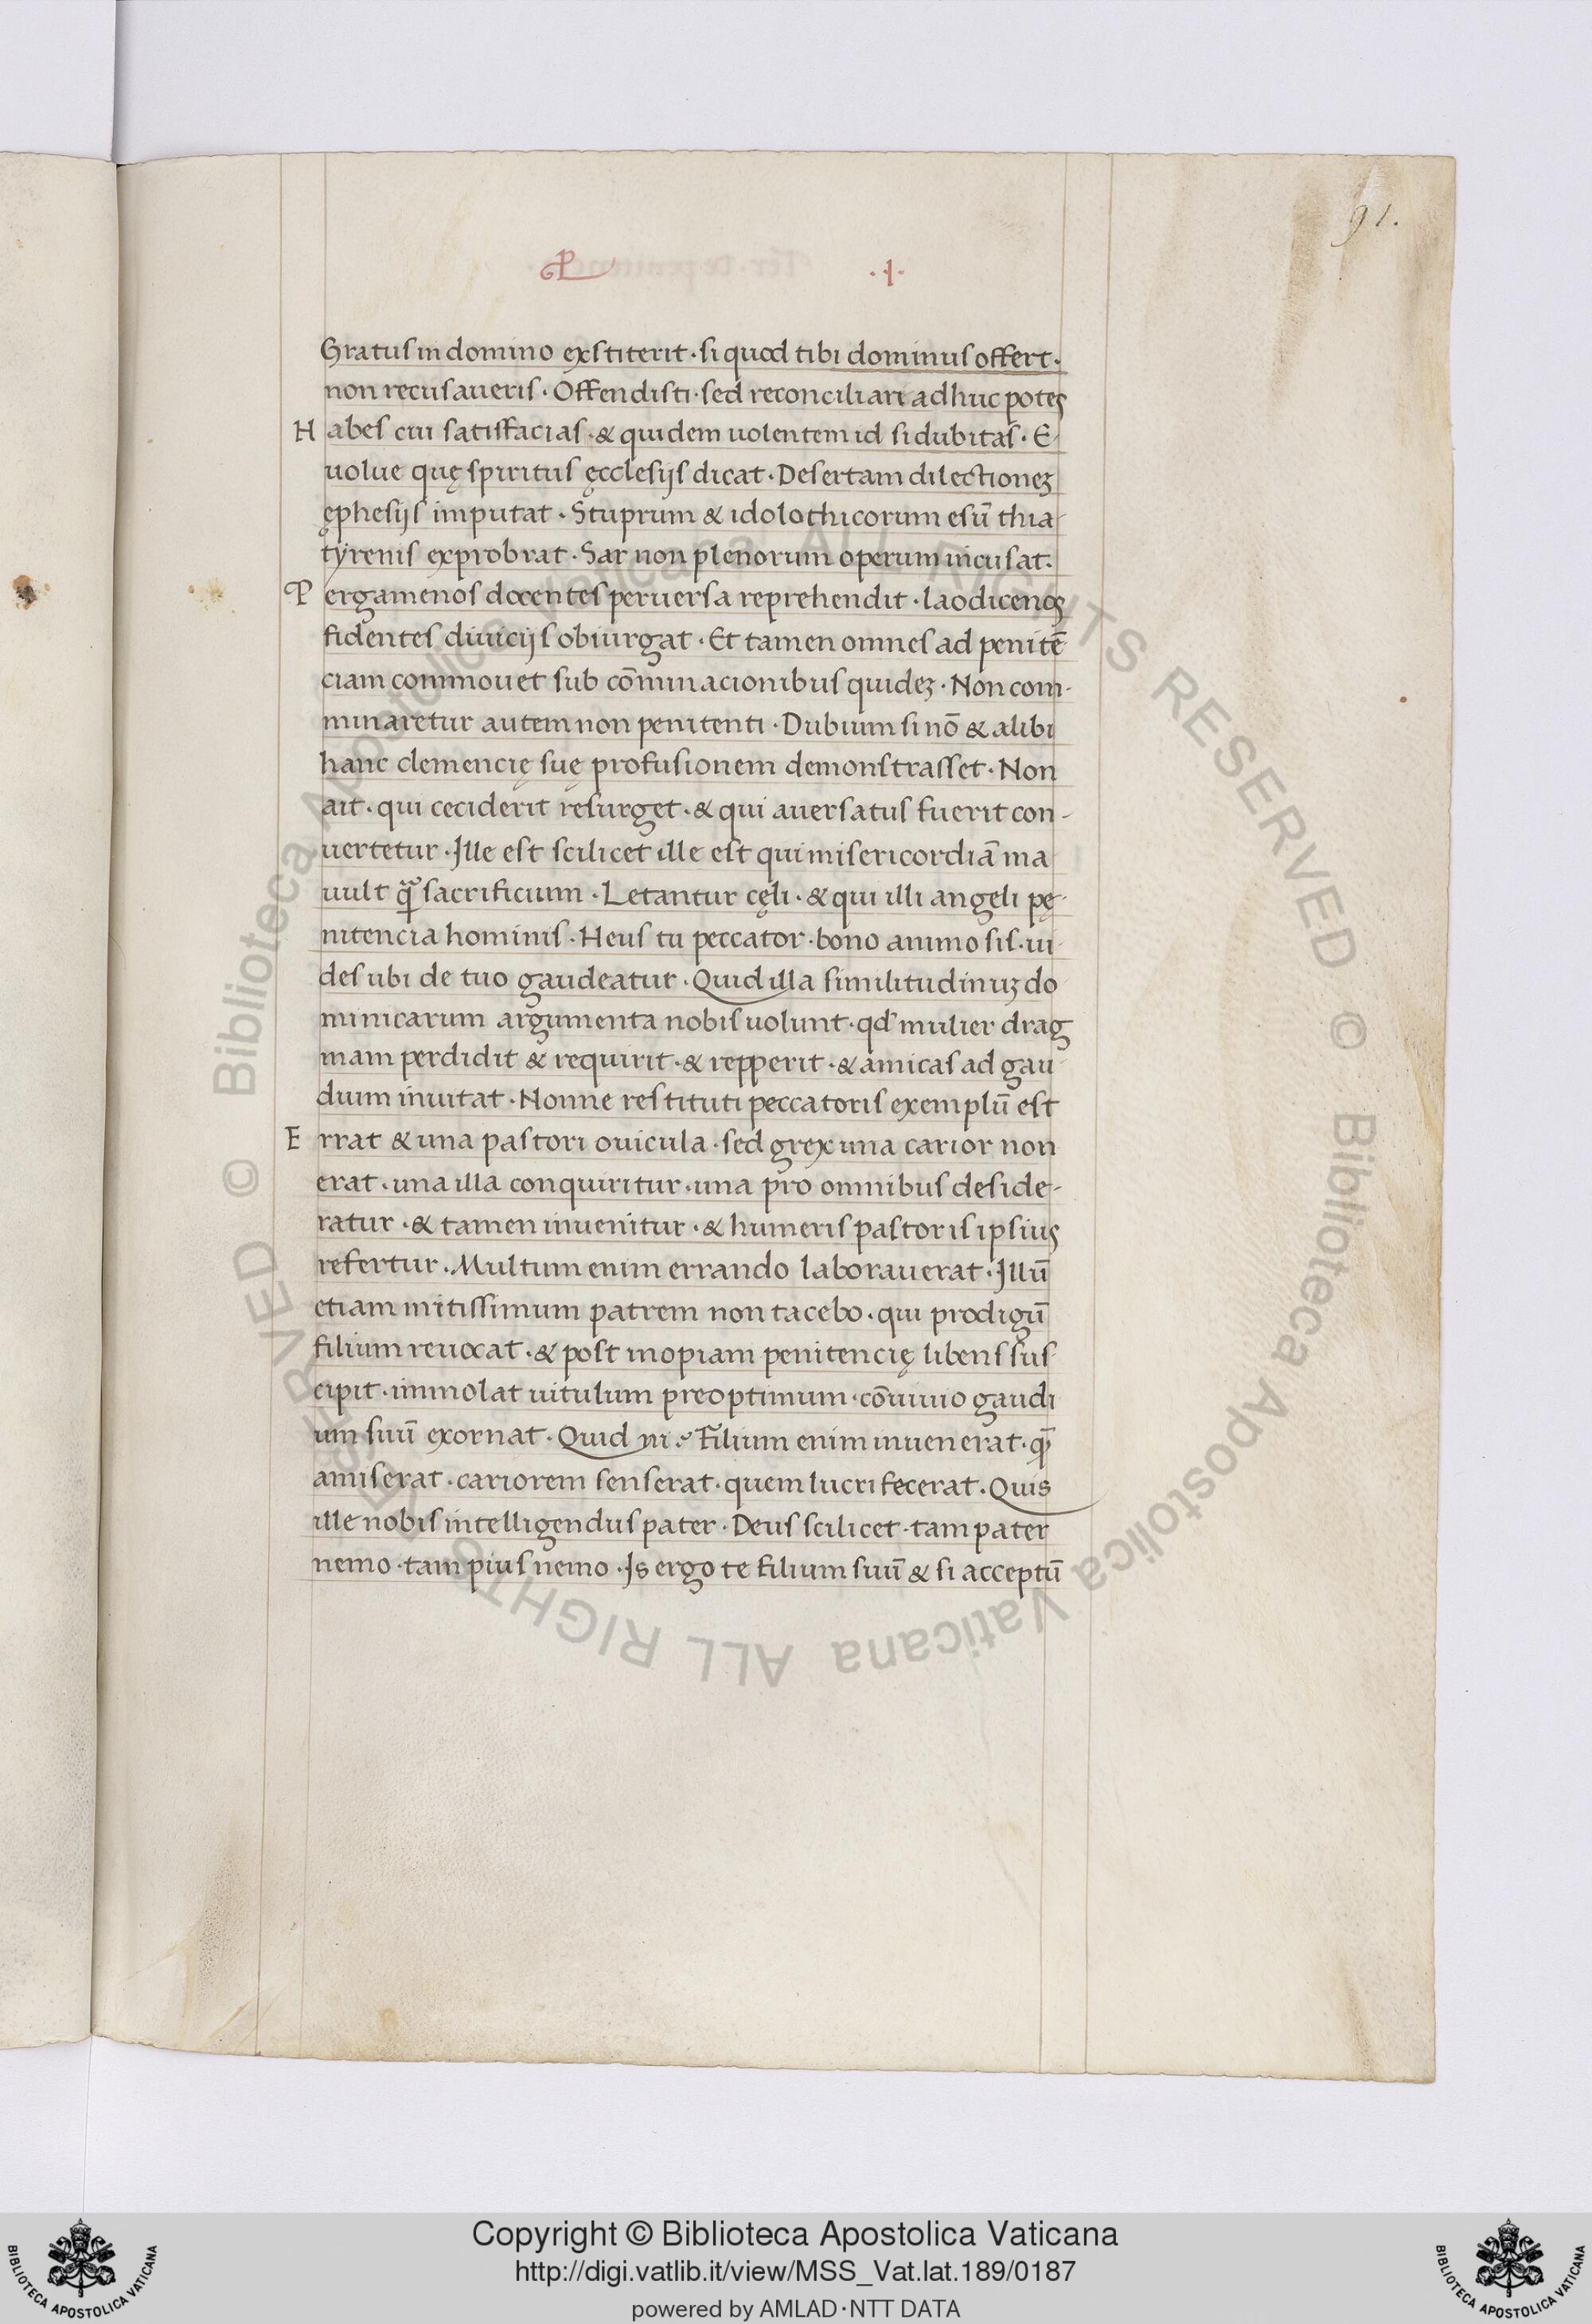 91.
P .I.
Gratus in domino exstiterit · si quod tibi dominus offert ·
non recusaueris · Offendisti · sed reconciliari adhuc potes
Habes cui satisfacias · & quidem uolentem id si dubitas · E-
uolue quę spiritus ęcclesijs dicat · Desertam dilectioneꝫ
ęphesijs imputat · Stuprum & idolothicorum esū thia-
tyrenis exprobrat · Sar non plenorum operum incusat ·
Pergamenos docentes peruersa reprehendit · laodicenos
fidentes diuicijs obiurgat · Et tamen omnes ad penitē
ciam commouet sub cōminacionibus quideꝫ · Non com-
minaretur autem non penitenti · Dubium si nō & alibi
hanc clemencię suę profusionem demonstrasset · Non
ait · qui ceciderit resurget · & qui auersatus fuerit con-
uertetur · Ille est scilicet ille est qui misericordiā ma
uult quā sacrificium · Letantur cęli · & qui illi angeli pę-
nitencia hominis · Heus tu peccator · bono animo sis · ui-
des ubi de tuo gaudeatur · Quid illa similitudinuꝫ do
minicarum argumenta nobis uolunt · qd̄ mulier drag
mam perdidit & requirit · & repperit · & amicas ad gau-
dium inuitat · Nonne restituti peccatoris exemplū est
Errat & una pastori ouicula · sed grex una carior non
erat · una illa conquiritur · una pro omnibus deside-
ratur · & tamen inuenitur · & humeris pastoris ipsius
refertur · Multum enim errando laborauerat · Illū
etiam mitissimum patrem non tacebo · qui prodigū
filium reuocat · & post inopiam penitencię libens sus-
cipit · immolat uitulum preoptimum · cōuiuio gaudi
um suū exornat · Quid ni ? Filium enim inuenerat · quē
amiserat · cariorem senserat · quem lucri fecerat · Quis
ille nobis intelligendus pater · Deus scilicet · tam pater
nemo · tam pius nemo · Is ergo te filium suū & si acceptū
© Biblioteca Apostolica Vaticana ALL RIGHTS RESERVED © Biblioteca Apostolica Vaticana ALL RIGHTS RESERVED
BIBLIOTECA APOSTOLICA VATICANA
Copyright © Biblioteca Apostolica Vaticana
http://digi.vatlib.it/view/MSS_Vat.lat.189/0187
powered by AMLAD·NTT DATA
BIBLIOTECA APOSTOLICA VATICANA